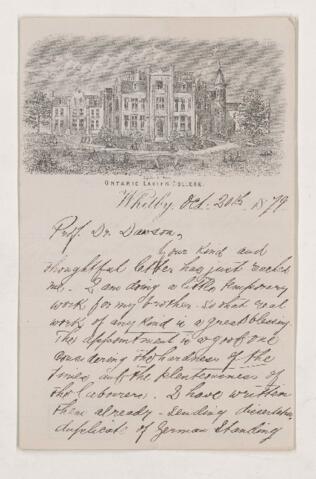 ONTARIO LADIES COLLEGE.
Whitby, Oct. 20th, 1879
Prof. Dr. Dawson,
your kind and
thoughtful letter has just reached
me. I am doing a little temporary
work for my brother so that real
work of any kind is a great blessing
The appointment is a good one
considering the hardness of the
times and the plenteousness of
the laborers. I have written
them already - sending
duplicate of German Standing